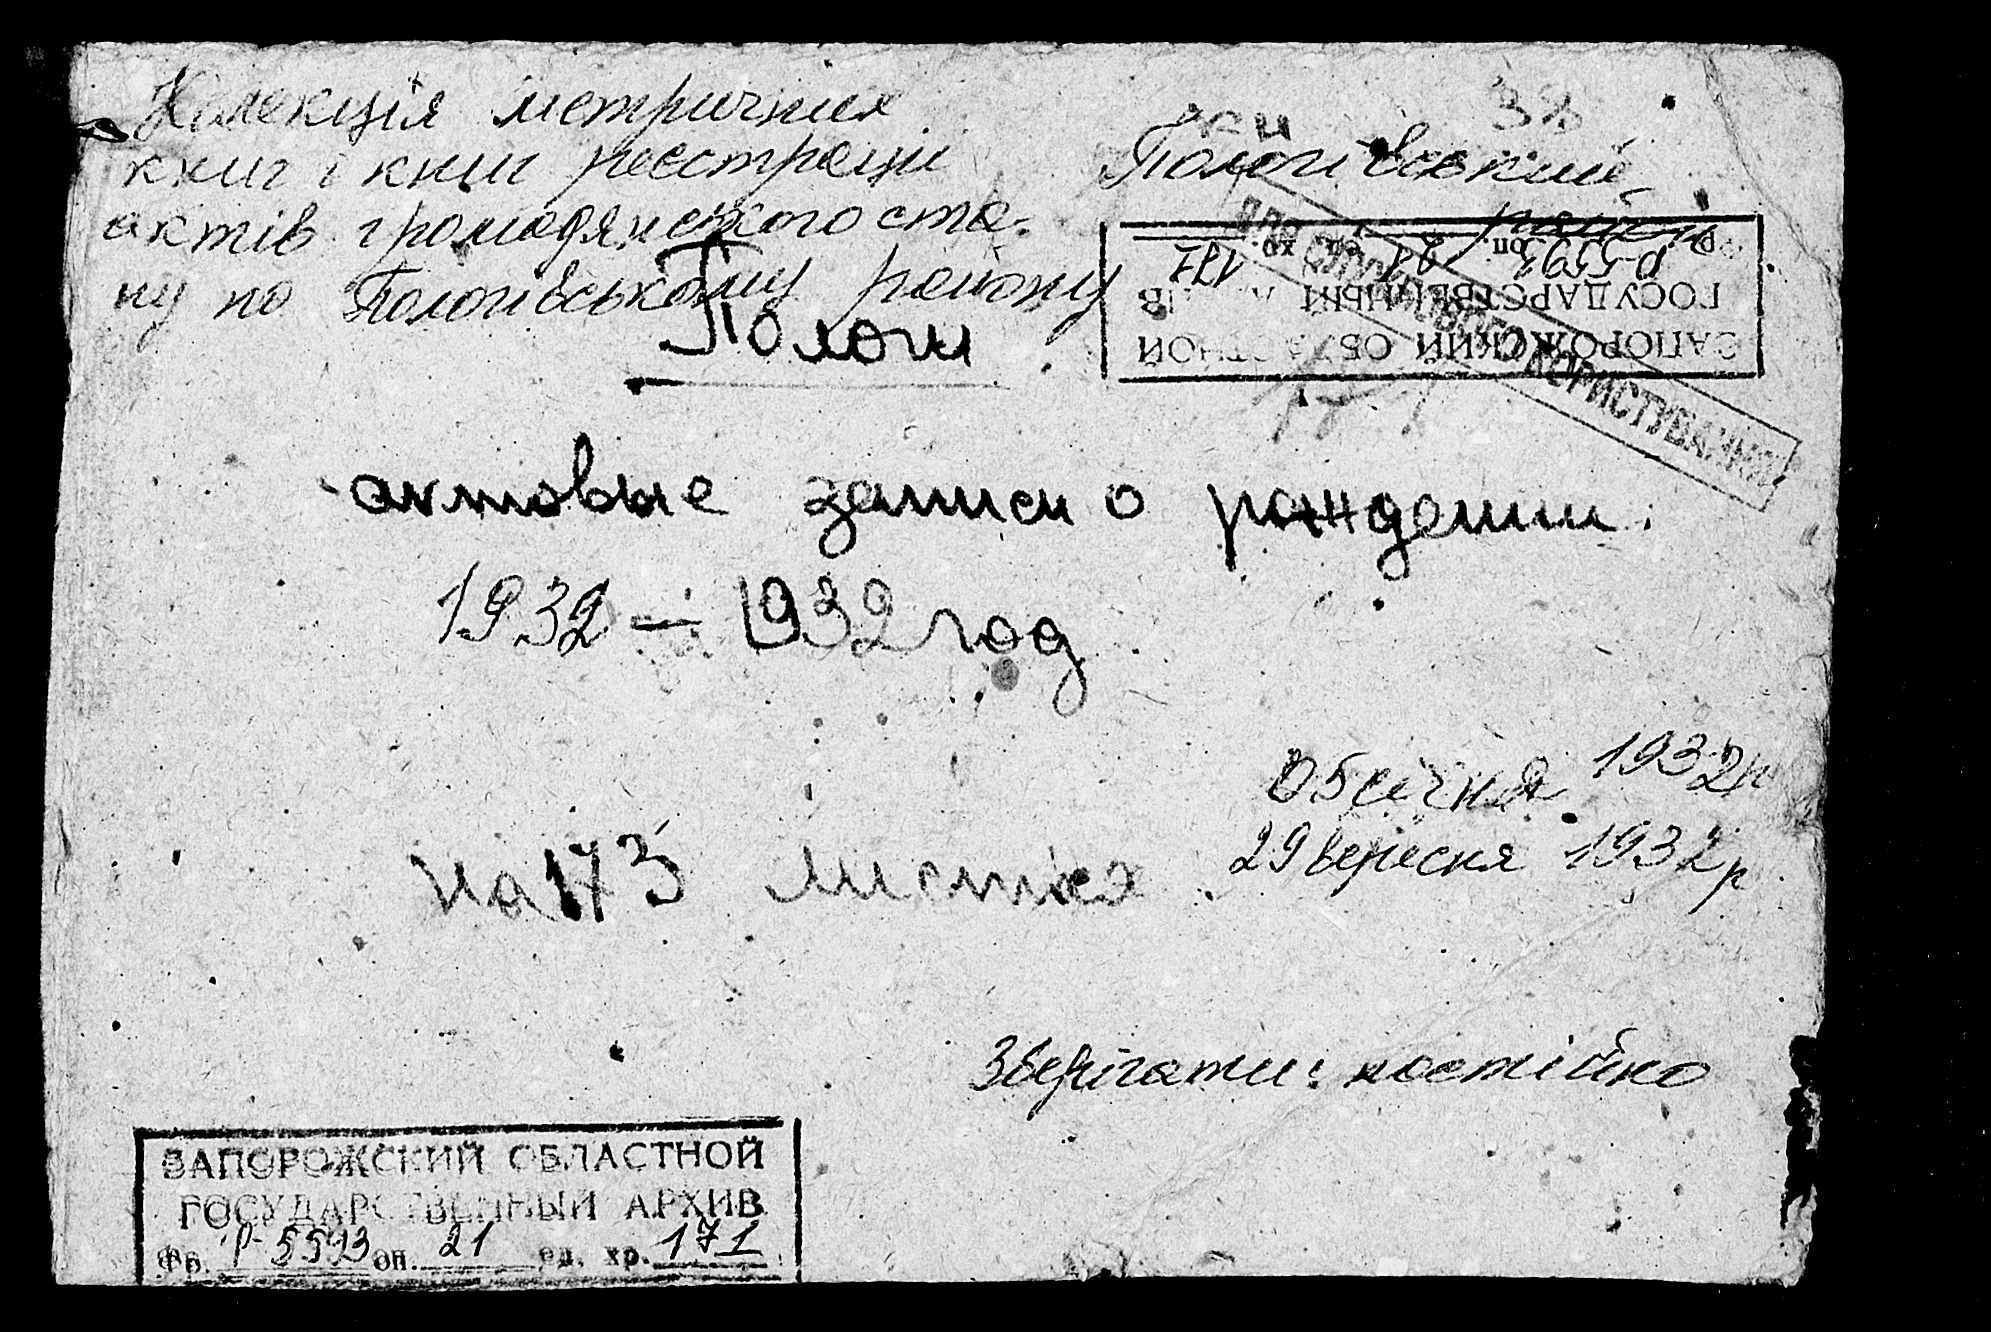 Колекція метричних
книг і книг реєстрації
актів громадянського ста-
ну по Пологівському району
Пологівський
район
ЗАПОРОЖСКИЙ ОБЛАСТНОЙ
ГОСУДАРСТВЕННЫЙ АРХИВ
Р-5593 оп. 21 хр. 171
ДЛЯ СТРАХОВОГО КОРИСТУВАННЯ
Пологи
актовые записи о рождении.
1932 — 1932 год
05 січня 1932 р
29 вересня 1932 р.
на 173 листах
Зберігати: постійно
ЗАПОРОЖСКИЙ ОБЛАСТНОЙ
ГОСУДАРСТВЕННЫЙ АРХИВ
Фо. Р-5593 оп. 21 ед. хр. 171